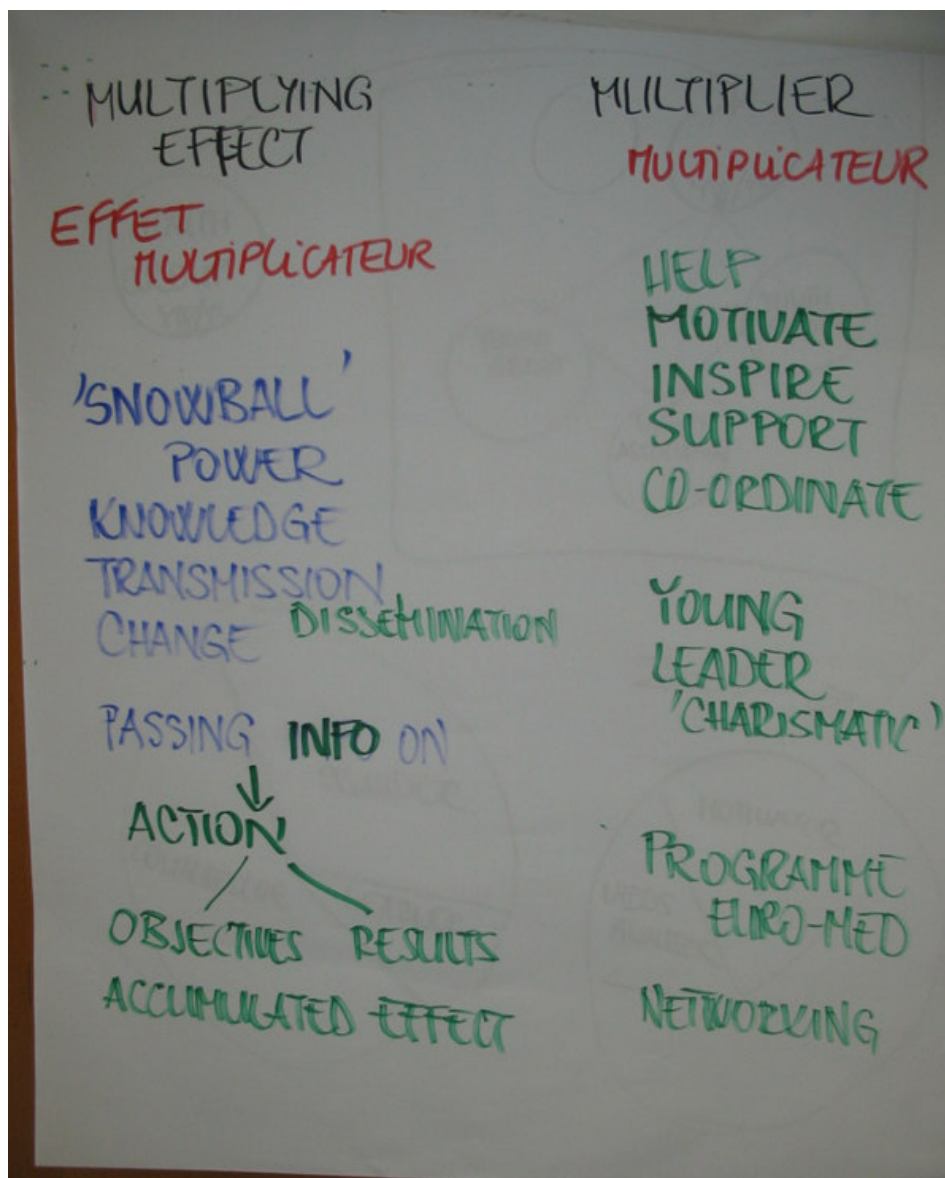 MULTIPLYING
EFFECT
EFFET
MULTIPLICATEUR
'SNOWBALL'
POWER
KNOWLEDGE
TRANSMISSION
CHANGE DISSEMINATION
PASSING INFO ON
ACTION
OBJECTIVES RESULTS
ACCUMULATED EFFECT
MULTIPLIER
MULTIPLICATEUR
HELP
MOTIVATE
INSPIRE
SUPPORT
CO-ORDINATE
YOUNG
LEADER
'CHARISMATIC'
PROGRAMME
EURO-MED
NETWORKING